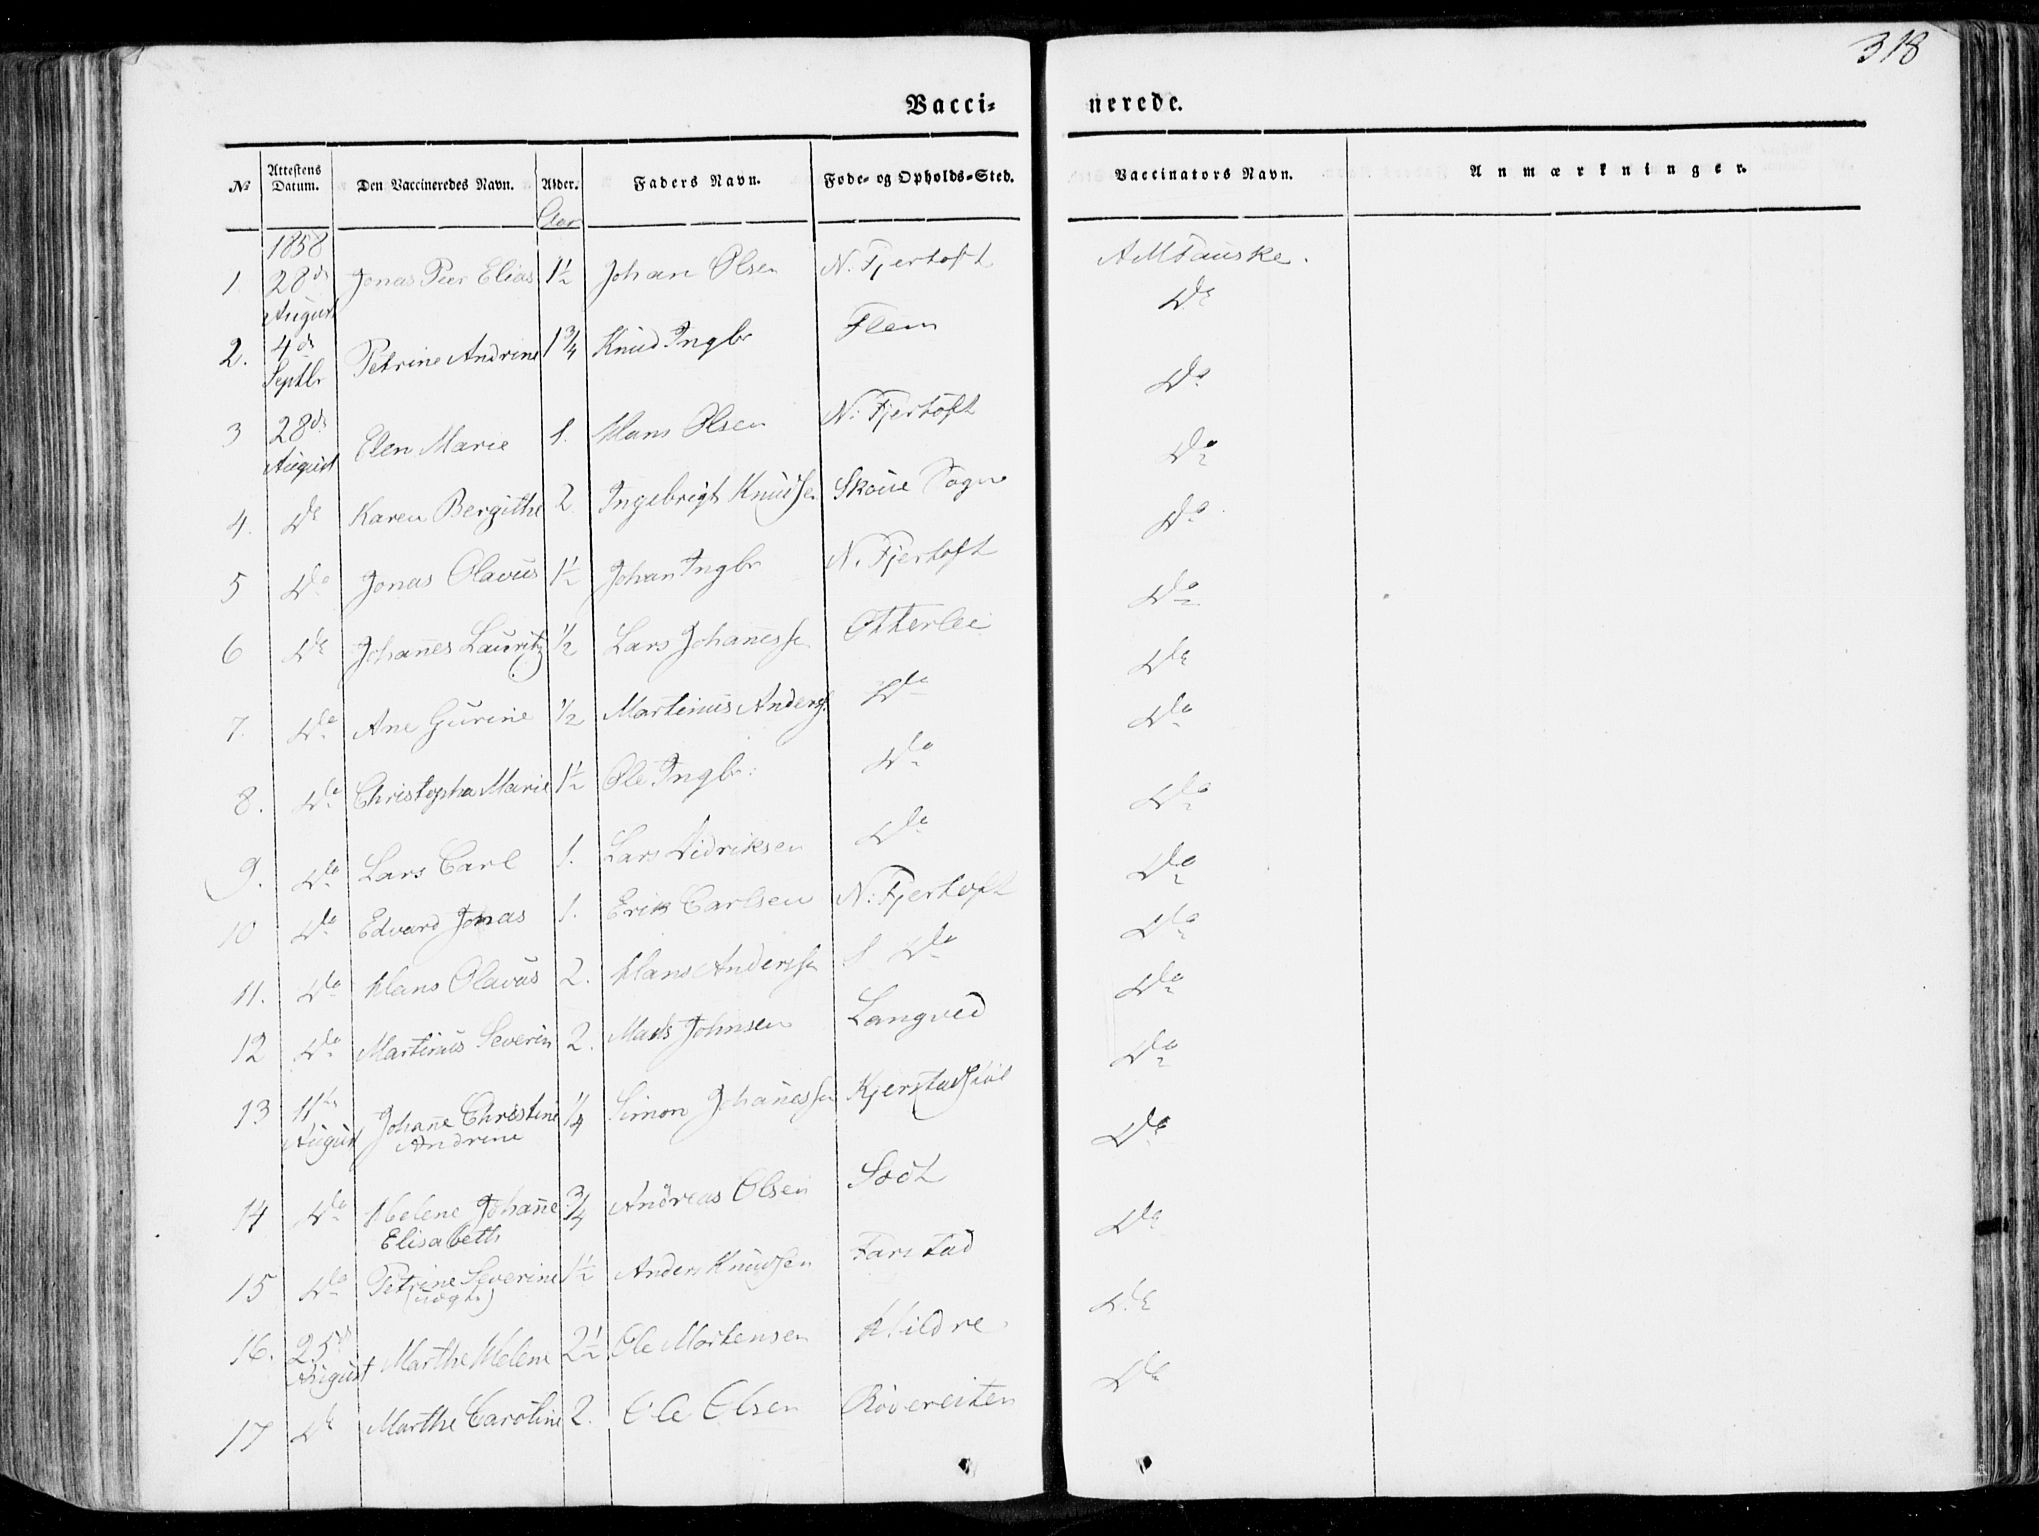 318
Vaccinerede.
No Attestens Datum. Den Vaccineredes Navn. Alder. Faders Navn. Føde- og Opholds-Sted. Vaccinators Navn. Anmærkninger.
Aar
1858
1. 28de August Jonas Peer Elias 1½ Johan Olsen N. Fjertoft AMTauske.
2. 4de Septbr Petrine Andrine 1¾ Knud Ingbr Flem Do
3 28de August Elen Marie 1. Hans Olsen N: Fjertoft Do
4. Do Karen Bergithe 2. Ingebrigt Knudsen Skoue Sogn Do
5 Do Jonas Olavus 1½ Johan Ingbr N. Fjertoft Do
6 Do Johannes Lauritz ½ Lars Johannessen Otterlei Do
7. Do Ane Gurine ½ Martinus Anders. Do Do
8. Do Christopha Marie 1½ Ole Ingbr: Do Do
9. Do Lars Carl 1. Lars Didriksen Do Do
10 Do Edvard Jonas 1. Erik Carlsen N: Fjertoft Do
11. Do Hans Olavus 2. Hans Anderssen S Do Do
12 Do Martinus Severin 2. Mads Johnsen Langved Do
13 11te August Johanne Christine Andrine ¼ Simon Johannessen Do
14 Do Helene Johanne Elisabeth ¾ Andreas Olsen Do
15 Do Petrine Severine (uægte) 1½ Anders Knudsen Farstad Do
16. 25de August Marthe Helene 2½ Ole Mortensen Hildre Do
17 Do Marthe Caroline 2. Ole Olsen Røvereiten Do